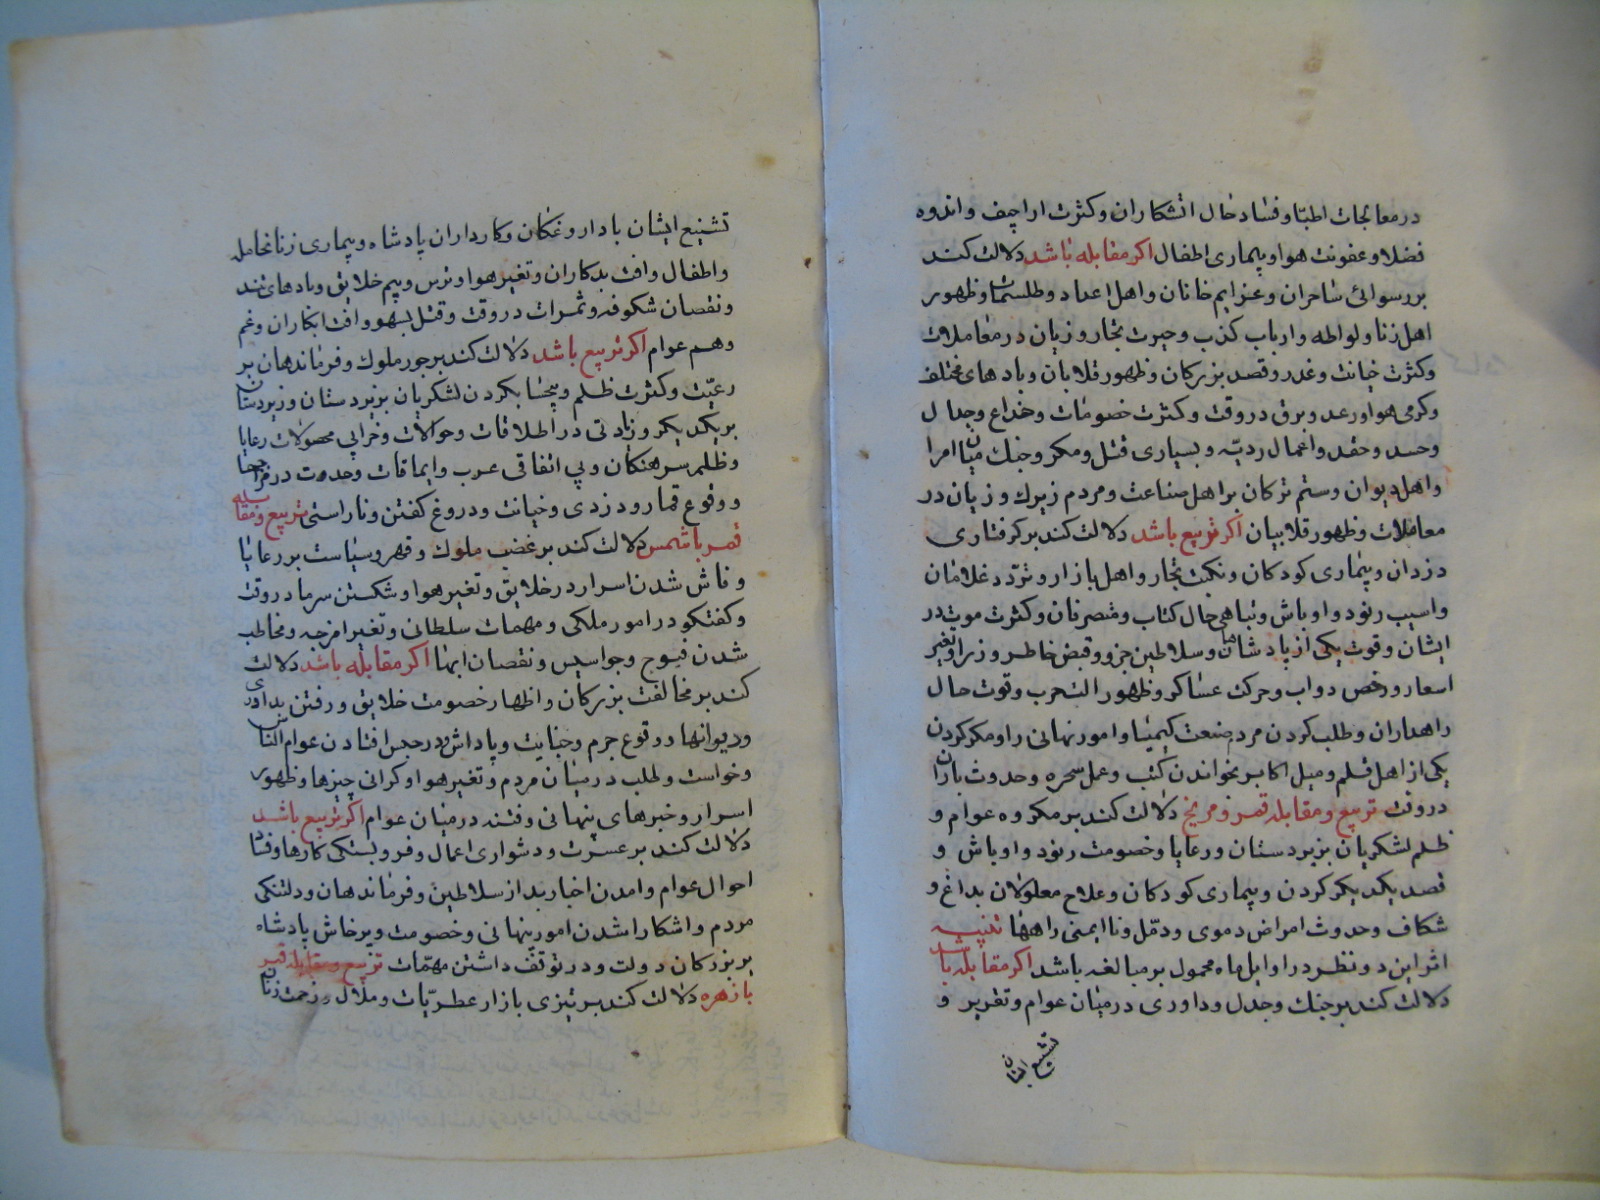 در معالجات اطبا و فساد حال اتشکاران و کثرت اراجیف و اندوه
فضلا و عفونت هوا و بیماری اطفال اکر مقابله باشد دلالت کند
بر رسوائی ساحران و عزایم خانان و اهل اعداد و طلسمات و ظهور
اهل زنا و لواطه و ارباب کذب و حیرت تجار و زیان در معاملات
و کثرت خیانت و غدر و قصد بزرکان و ظهور قلابان و باد های مختلف
و کرمی هوا و رعد و برق در وقت و کثرت خصومات و خداع و جدال
و حسد و حقد و اعمال ردیّه و بسیاری قتل و مکر و جنک میان امرا
و اهل دیوان و ستم ترکان بر اهل صناعت و مردم زیرک و زیان در
معاملات و ظهور قلابیان اکر تربیع باشد دلالت کند بر کرفتاری
دزدان و بیماری کودکان و نکبت تجار و اهل بازار و تردّد غلامان
و اسیب رنود و اوباش و تباهی حال کتاب و متصرفان و کثرت موت در
ایشان و فوت یکی از پادشاهان و سلاطین جزو و قبض خاطر وزرا و تغیر
اسعار و رخص دواب و حرکت عساکر و ظهور و قوت حال
راهداران و طلب کردن مردم صنعت کیمیا و امور نهانی را و مکر کردن
یکی از اهل قلم و میل اکابر بخواندن کتب و عمل سحره و حدوث باران
در وقت تربیع و مقابله قمر و مریخ دلالت کند بر مکروه عوام و
ظلم لشکریان بزیردستان و رعایا و خصومت رنود و اوباش و
قصد یکدیکر کردن و بیماری کودکان و علاج معلولان بداغ و
شکاف و حدوث امراض دموی و دمّل و نا ایمنی راهها تنبیه
اثر این دو نظر در اوایل ماه محمول بر مبالغه باشد اکر مقابله باشد
دلالت کند بر جنک و جدل و داوری در میان عوام و تقریر و
تشنیع ایشان
تشنیع ایشان با داروغکان و کارداران پادشاه و بیماری زنان حامله
و اطفال و افت بدکاران و تغیر هوا و ترس و بیم خلایق و باد های تند
و نقصان شکوفه و ثمرات در وقت و قتل بسهو و افت ابکاران و غم
و هم عوام اکر تربیع باشد دلالت کند بر جور ملوک و فرماندهان بر
رعیّت و کثرت ظلم و بیحسا بکردن لشکریان بر زیردستان و زیردستان
بر یکدیکر و زیادتی در اطلاقات و حوالات و خرابی محصولات رعایا
و ظلم سرهنکان و بی اتفاقی عرب و ایماقات و حدوت در مزاجها
و وقوع قمار و دزدی و خیانت و دروغ کفتن و ناراستی تربیع و مقابله
قمر با شمس دلالت کند بر غضب ملوک و قهر و سیاست بر رعایا
و فاش شدن اسرار در خلایق و تغیر هوا و شکستن سرما در وقت
و کفتکو در امور ملکی و مهمات سلطانی و تغیر امزجه و مخاطب
شدن فیوج و جواسیس و نقصان ابها اکر مقابله باشد دلالت
کند بر مخالفت بزرکان و اظهار خصومت خلایق و رفتن بداوری
و دیوانها و وقوع جرم و جنایت و پاداش و در حبس افتادن عوام الناس
و خواست و طلب در میان مردم و تغیر هوا و کرانی چیزها و ظهور
اسرار و خبر های پنهانی و فتنه در میان عوام اکر تربیع باشد
دلالت کند بر عسرت و دشواری اعمال و فروبستکی کارها و فساد
احوال عوام و امدن اخبار بد از سلاطین و فرماندهان و دلتنکی
مردم و اشکارا شدن امور پنهانی و خصومت و پرخاش پادشاه
بر بزرکان دولت و در توقف داشتن مهمّات تربیع و مقابله قمر
با زهره دلالت کند بر تیزی بازار عطریّات و ملال و زحمت زنان